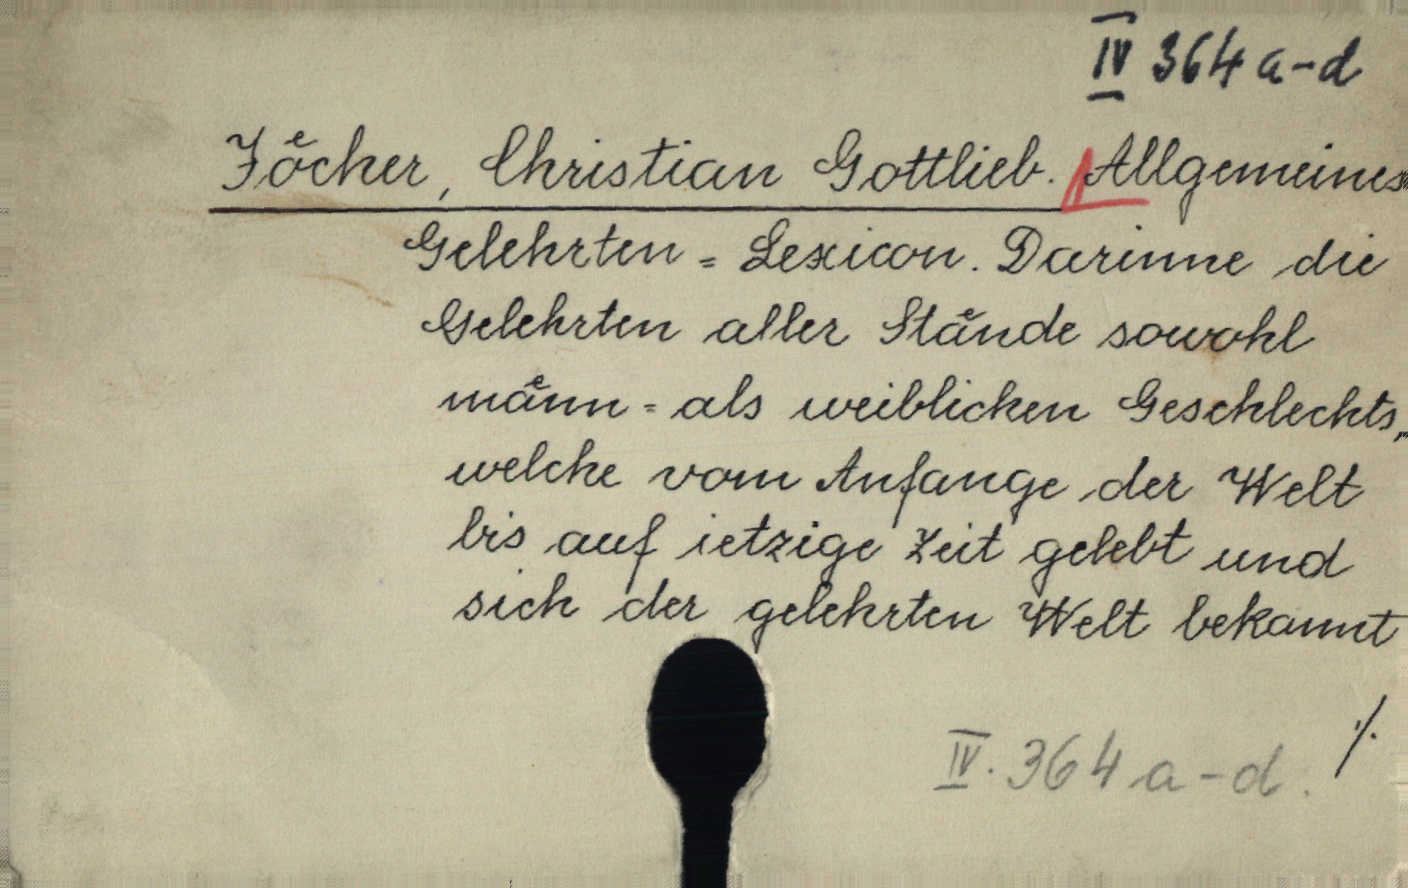 IV 364 a-d
Jöcher, Christian Gottlieb. Allgemeines
Gelehrten = Lexicon. Darinne die
Gelehrten aller Stände sowohl
männ = als weiblichen Geschlechts,
welche vom Anfange der Welt
bis auf ietzige Zeit gelebt und
sich der gelehrten Welt bekannt
IV. 364 a-d.
./.